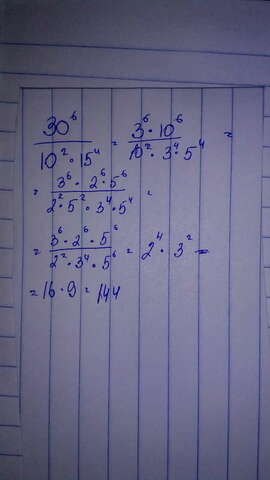 30⁶/(10²·15⁴) = (3⁶·10⁶)/(10²·3⁴·5⁴) =
= (3⁶·2⁶·5⁶)/(2²·5²·3⁴·5⁴) =
= (3⁶·2⁶·5⁶)/(2²·3⁴·5⁶) = 2⁴·3² =
= 16·9 = 144